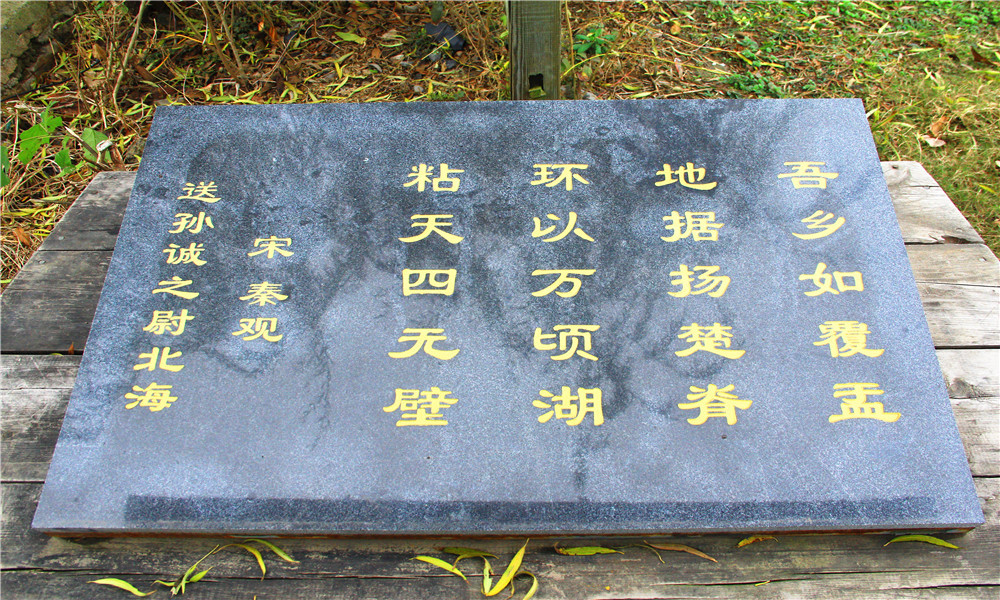 吾乡如覆盂
地据扬楚脊
环以万顷湖
粘天四无壁
宋秦观
送孙诚之尉北海